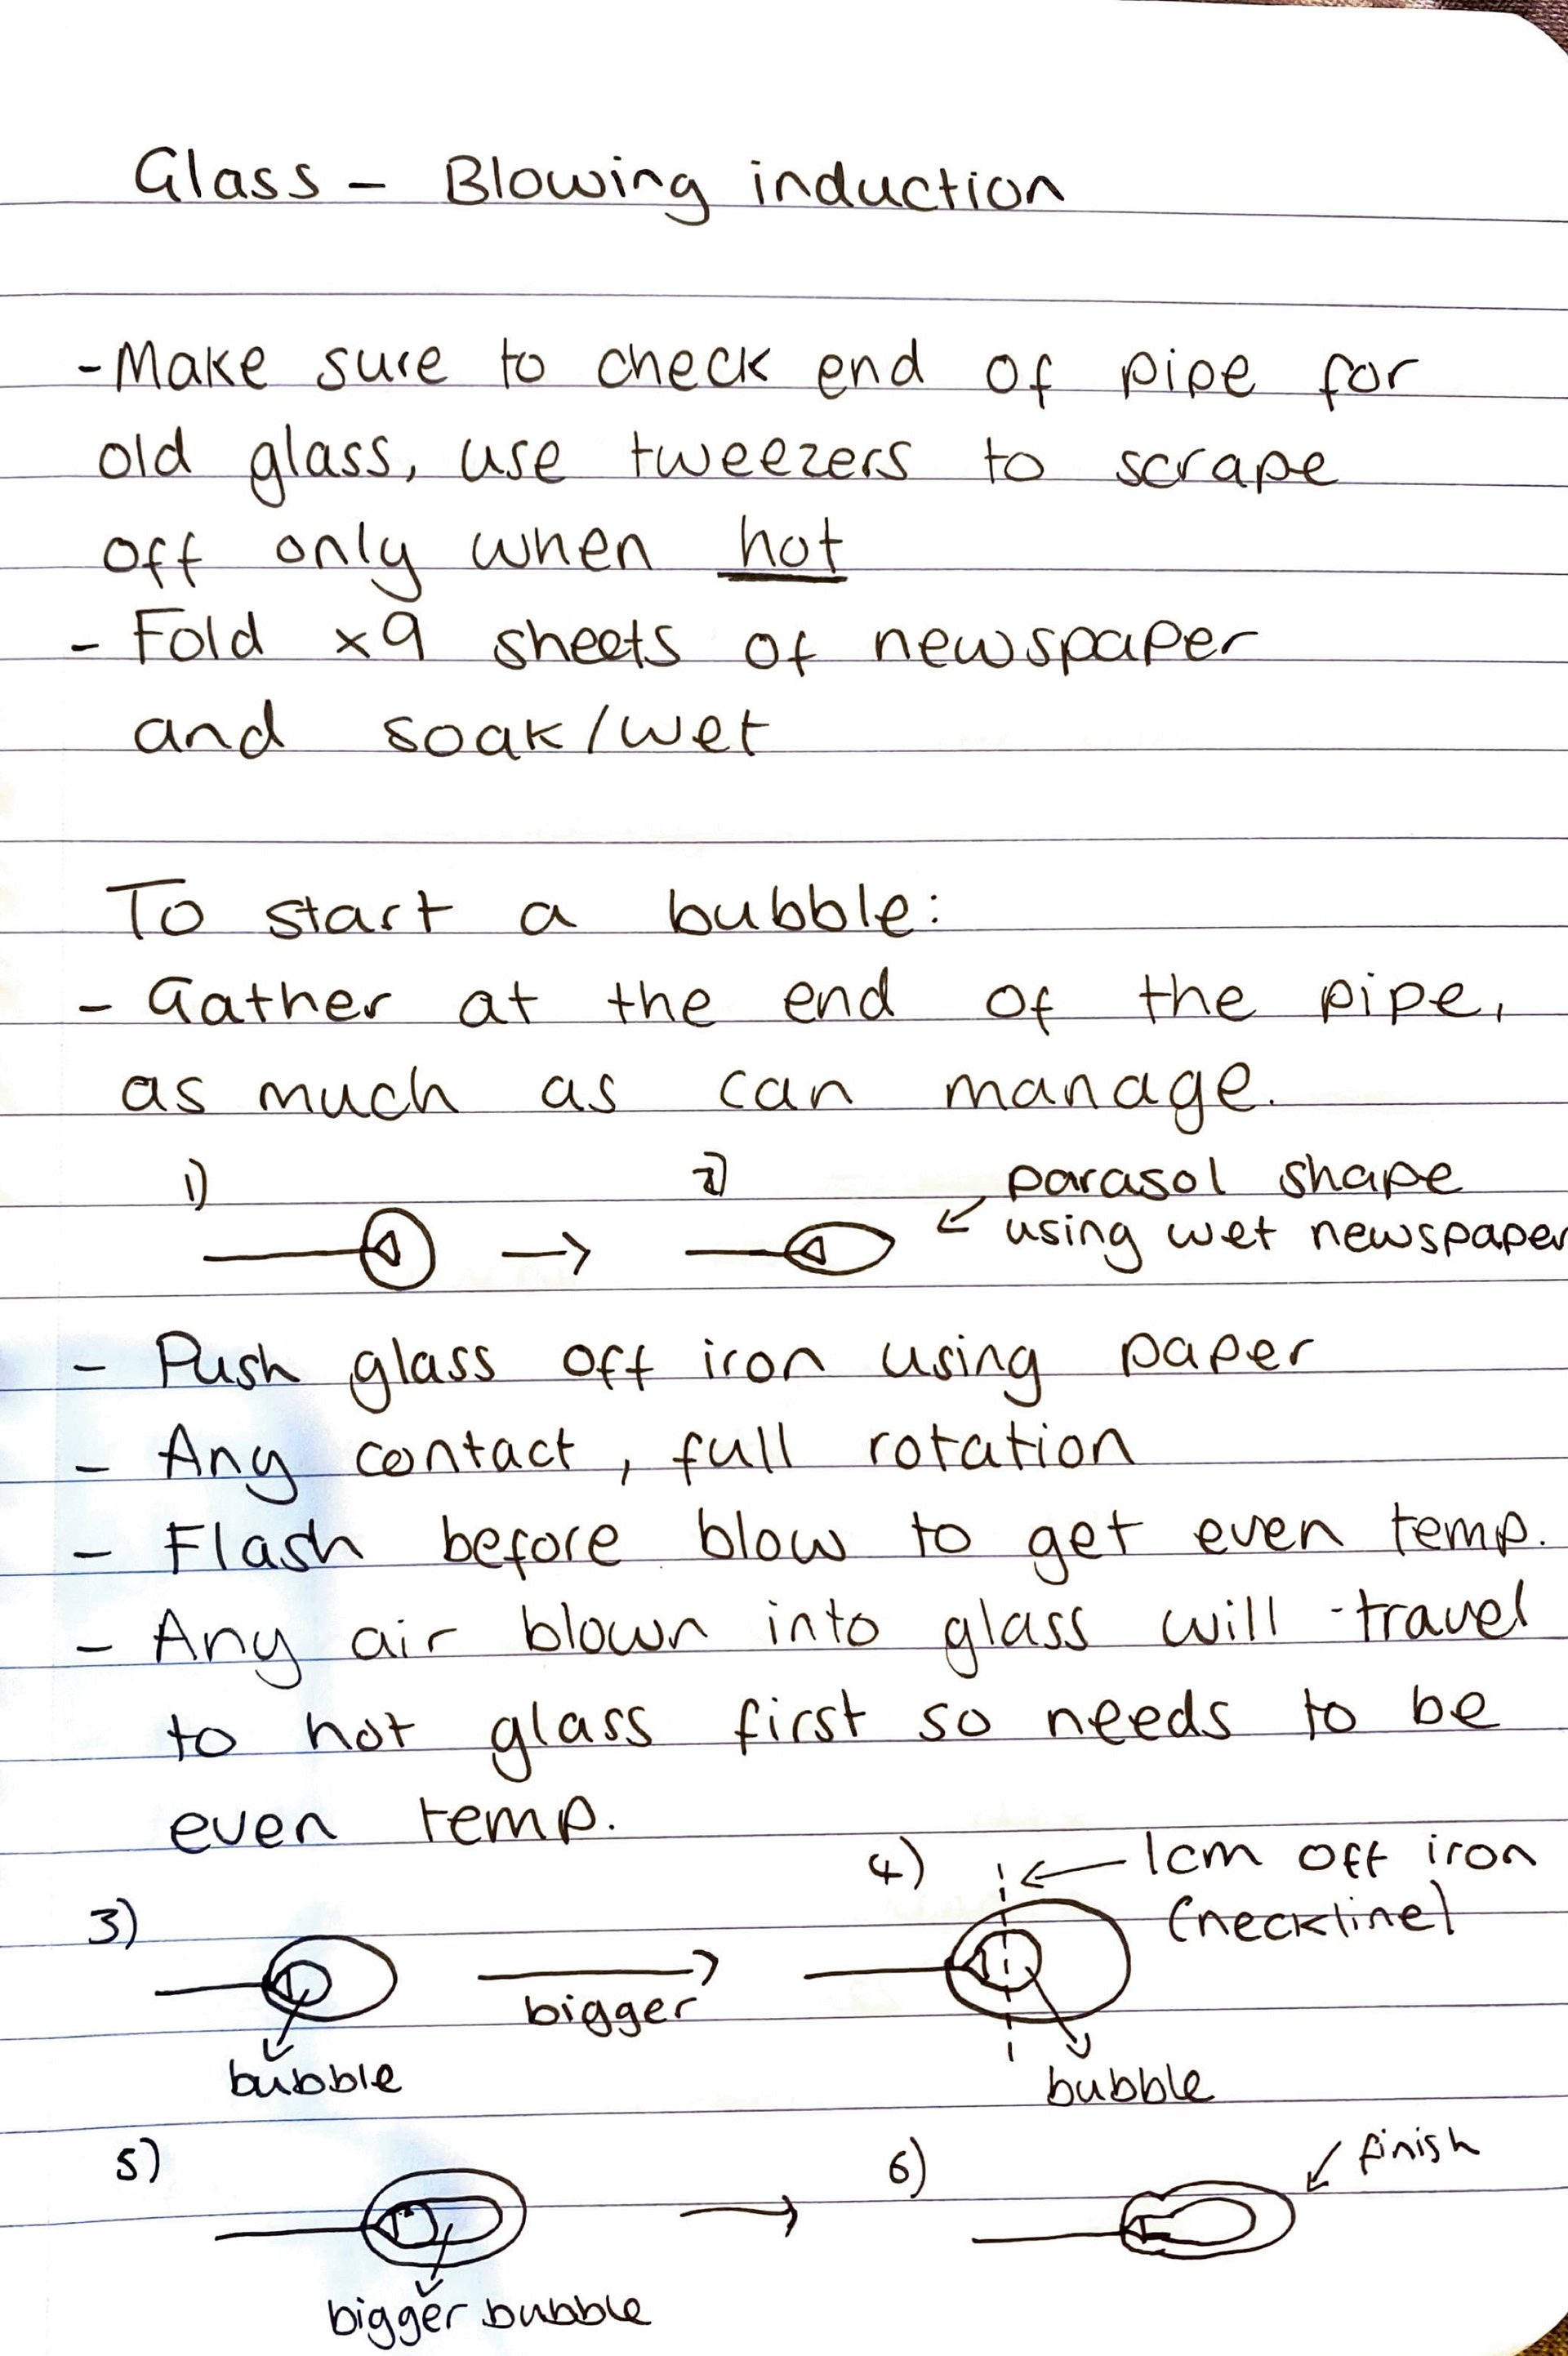 Glass - Blowing induction
- Make sure to check end of pipe for
old glass, use tweezers to scrape
off only when hot
- Fold x9 sheets of newspaper
and soak/wet
To start a bubble:
- Gather at the end of the pipe,
as much as can manage.
1) 2) parasol shape
using wet newspaper
- Push glass off iron using paper
- Any contact, full rotation
- Flash before blow to get even temp.
- Any air blown into glass will travel
to hot glass first so needs to be
even temp.
4) 1cm off iron
3) (neckline)
bigger
bubble bubble
5) 6) finish
bigger bubble